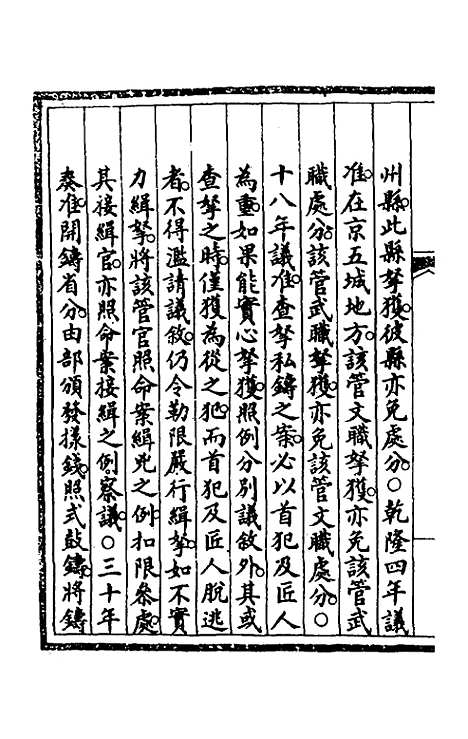 州縣此縣拏獲彼縣亦免處分○乾隆四年議
准在京五城地方該管文職拏獲亦免該管武
職處分該管武職拏獲亦免該管文職處分○
十八年議准查拏私鑄之案必以首犯及匠人
為重如果能實心拏獲照例分別議敘外其或
查拏之時僅獲為從之犯而首犯及匠人脫逃
者不得濫請議敘仍令勒限嚴行緝拏如不實
力緝拏將該管官照命案緝兇之例扣限參處
其接緝官亦照命案接緝之例察議○三十年
奏准開鑄省分由部頒發樣錢照式鼓鑄將鑄